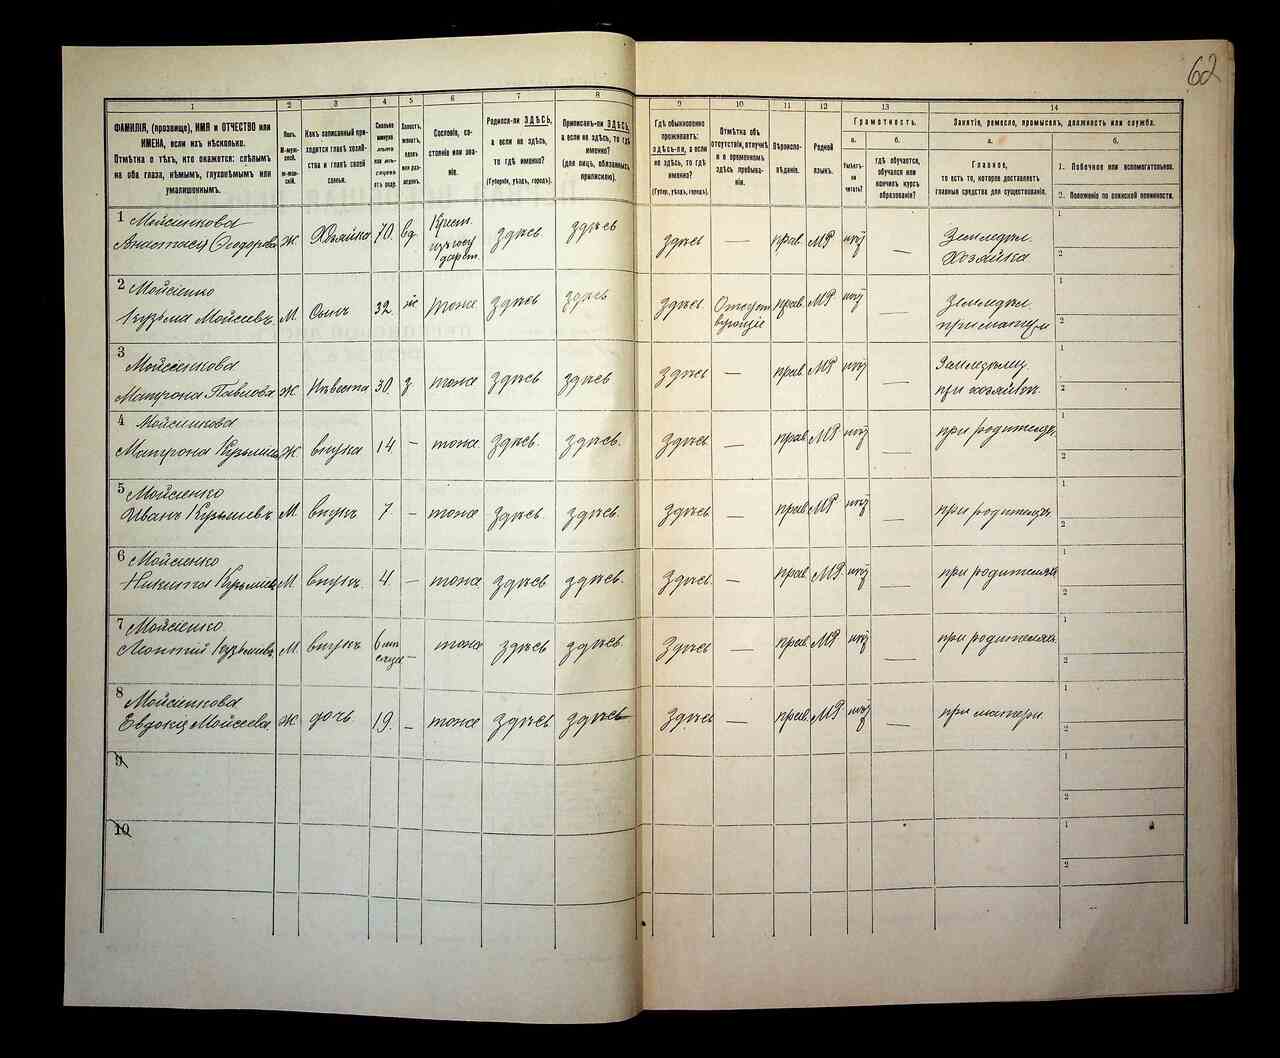 62
1 2 3 4 5 6 7 8 9 10 11 12 13 14
ФАМИЛІЯ, (прозвище), ИМЯ и ОТЧЕСТВО или
ИМЕНА, если ихъ нѣсколько.
Отмѣтка о тѣхъ, кто окажется: слѣпымъ
на оба глаза, нѣмымъ, глухонѣмымъ или
умалишоннымъ.
Полъ.
М-муж-
ской.
Ж-жен-
скій.
Какъ записанный при-
ходится главѣ хозяй-
ства и главѣ своей
семьи.
Сословіе, со-
стояніе или зва-
ніе.
Родился-ли ЗДѢСЬ,
а если не здѣсь,
то гдѣ именно?
(Губернія, уѣздъ, городъ).
Приписанъ-ли ЗДѢСЬ,
а если не здѣсь, то гдѣ
именно?
(для лицъ, обязанныхъ
припискою).
Гдѣ обыкновенно
проживаетъ:
здѣсь-ли, а если
не здѣсь, то гдѣ
именно?
(Губер., уѣздъ, городъ).
Отмѣтка объ
отсутствіи, отлучкѣ
и о временномъ
здѣсь пребыва-
ніи.
Вѣроиспо-
вѣданіе.
Родной
языкъ.
Грамотность.
а. б.
Умѣетъ-
ли
читать?
гдѣ обучается,
обучался или
кончилъ курсъ
образованія?
Занятіе, ремесло, промыселъ, должность или служба.
а. б.
Главное,
то есть то, которое доставляетъ
главныя средства для существованія.
1. Побочное или вспомогательное.
2. Положеніе по воинской повинности.
1 Мойсіенкова
Анастасія Ѳеодорова Ж. Хозяйка 70. вд. Крест. изъ госу дарст. здѣсь. здѣсь здѣсь — прав. МР нѣтъ — Земледѣл. Хозяйка
1
2
2 Мойсіенко
Кузьма Мойсеевъ М. Сынъ 32. ж тоже. здѣсь здѣсь здѣсь. Отсутствующіе прав. МР нѣтъ Земледѣл.
1
2
3 Мойсіенкова
Матрона Павлова Ж. Невестка 30. з. тоже здѣсь здѣсь здѣсь — прав. МР нѣтъ — при хозяйств.
1
2
4 Мойсіенкова
Матрона Кузьмина Ж. внучка 14. — тоже. здѣсь. здѣсь. здѣсь — прав. МР нѣтъ — при родителяхъ.
1
2
5 Мойсіенко
Иванъ Кузьмичъ М. внукъ 7 — тоже здѣсь здѣсь. здѣсь — прав. МР нѣтъ — при родителяхъ.
1
2
6 Мойсіенко
Никита Кузьмичъ М. внукъ 4. — тоже. здѣсь здѣсь. здѣсь — прав. МР. нѣтъ — при родителяхъ
1
2
7 Мойсіенко
Леонтій Кузьмичъ. М. внукъ 6 мѣсяце — тоже здѣсь здѣсь. здѣсь — прав. МР нѣтъ — при родителяхъ.
1
2
8 Мойсіенкова
Евдокія Мойсеева. Ж. дочь 19. — тоже здѣсь здѣсь здѣсь. — прав. МР нѣтъ — при матери.
1
2
9
1
2
10
1
2